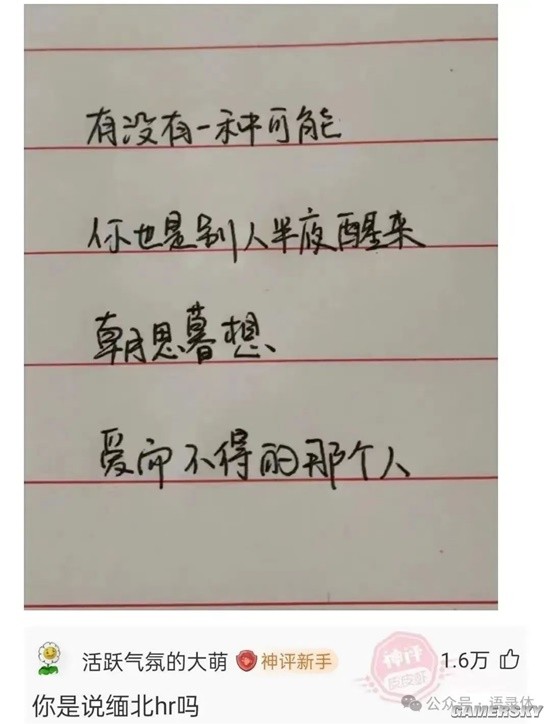 有没有一种可能
你也是别人半夜醒来
朝思暮想
爱而不得的那个人
活跃气氛的大萌 神评新手 神评 皮皮虾 1.6万
你是说缅北hr吗
公众号·语录体
GAMERSKY